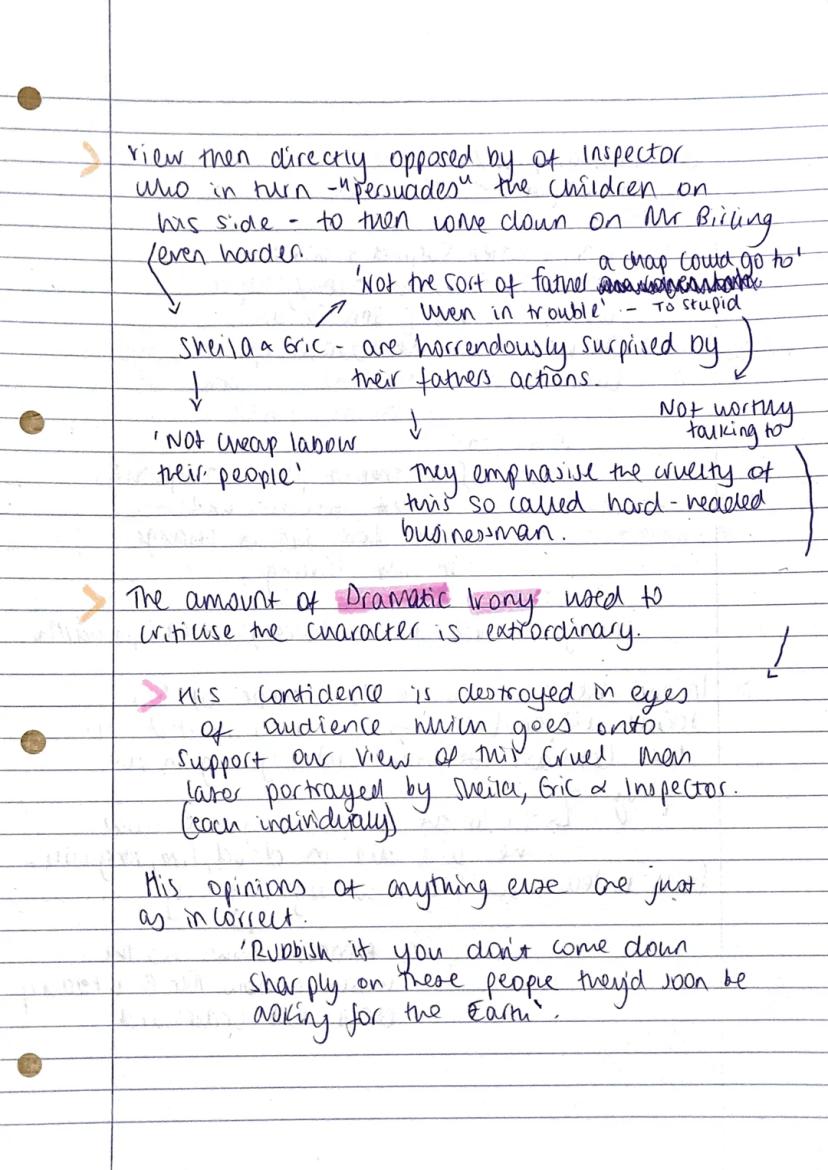 view then directly opposed by of Inspector
who in turn - "persuades" the children on
his side - to then come down on Mr Birling
even harder.
a chap could go to'
'Not the sort of father
when in trouble' - To stupid
Sheila & Eric - are horrendously surprised by
their fathers actions.
Not worthy
talking to
'Not cheap labour
their people'
They emphasise the cruelty of
this so called hard-headed
businessman.
The amount of Dramatic Irony used to
criticise the character is extrordinary.
His confidence is destroyed in eyes
of audience which goes onto
support our view of this cruel man
later portrayed by Sheila, Eric & Inspector.
(each individualy)
His opinions of anything else are just
as incorrect.
'Rubbish if you don't come down
sharply on these people they'd soon be
asking for the Earth'.